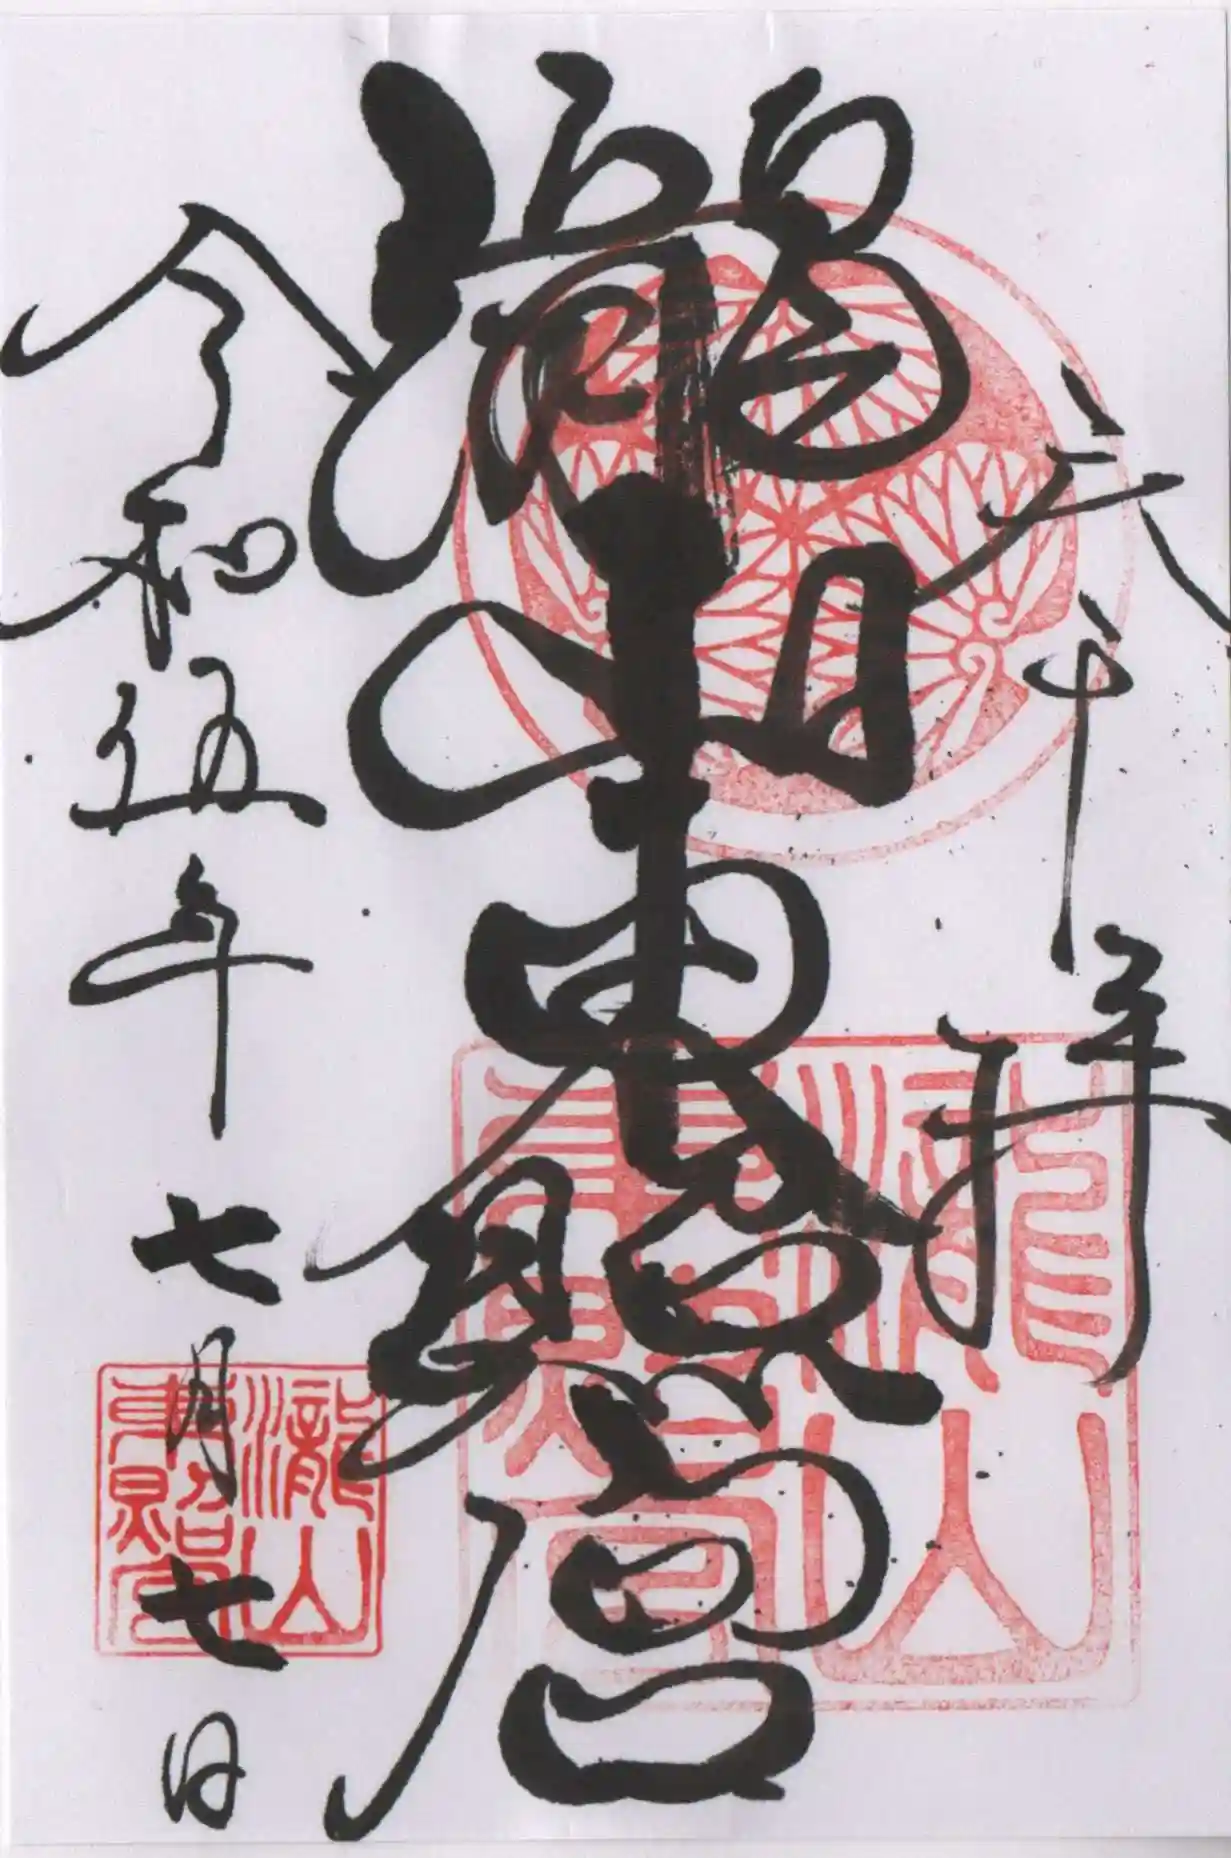 奉拝
瀧山東照宮
令和伍年七月七日
瀧山東照宮
瀧山東照宮